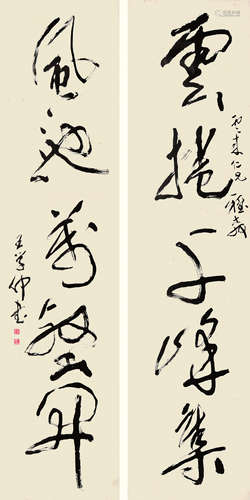 雲捲千峰集
來仁兄雅教
風馳萬壑開
王學仲書